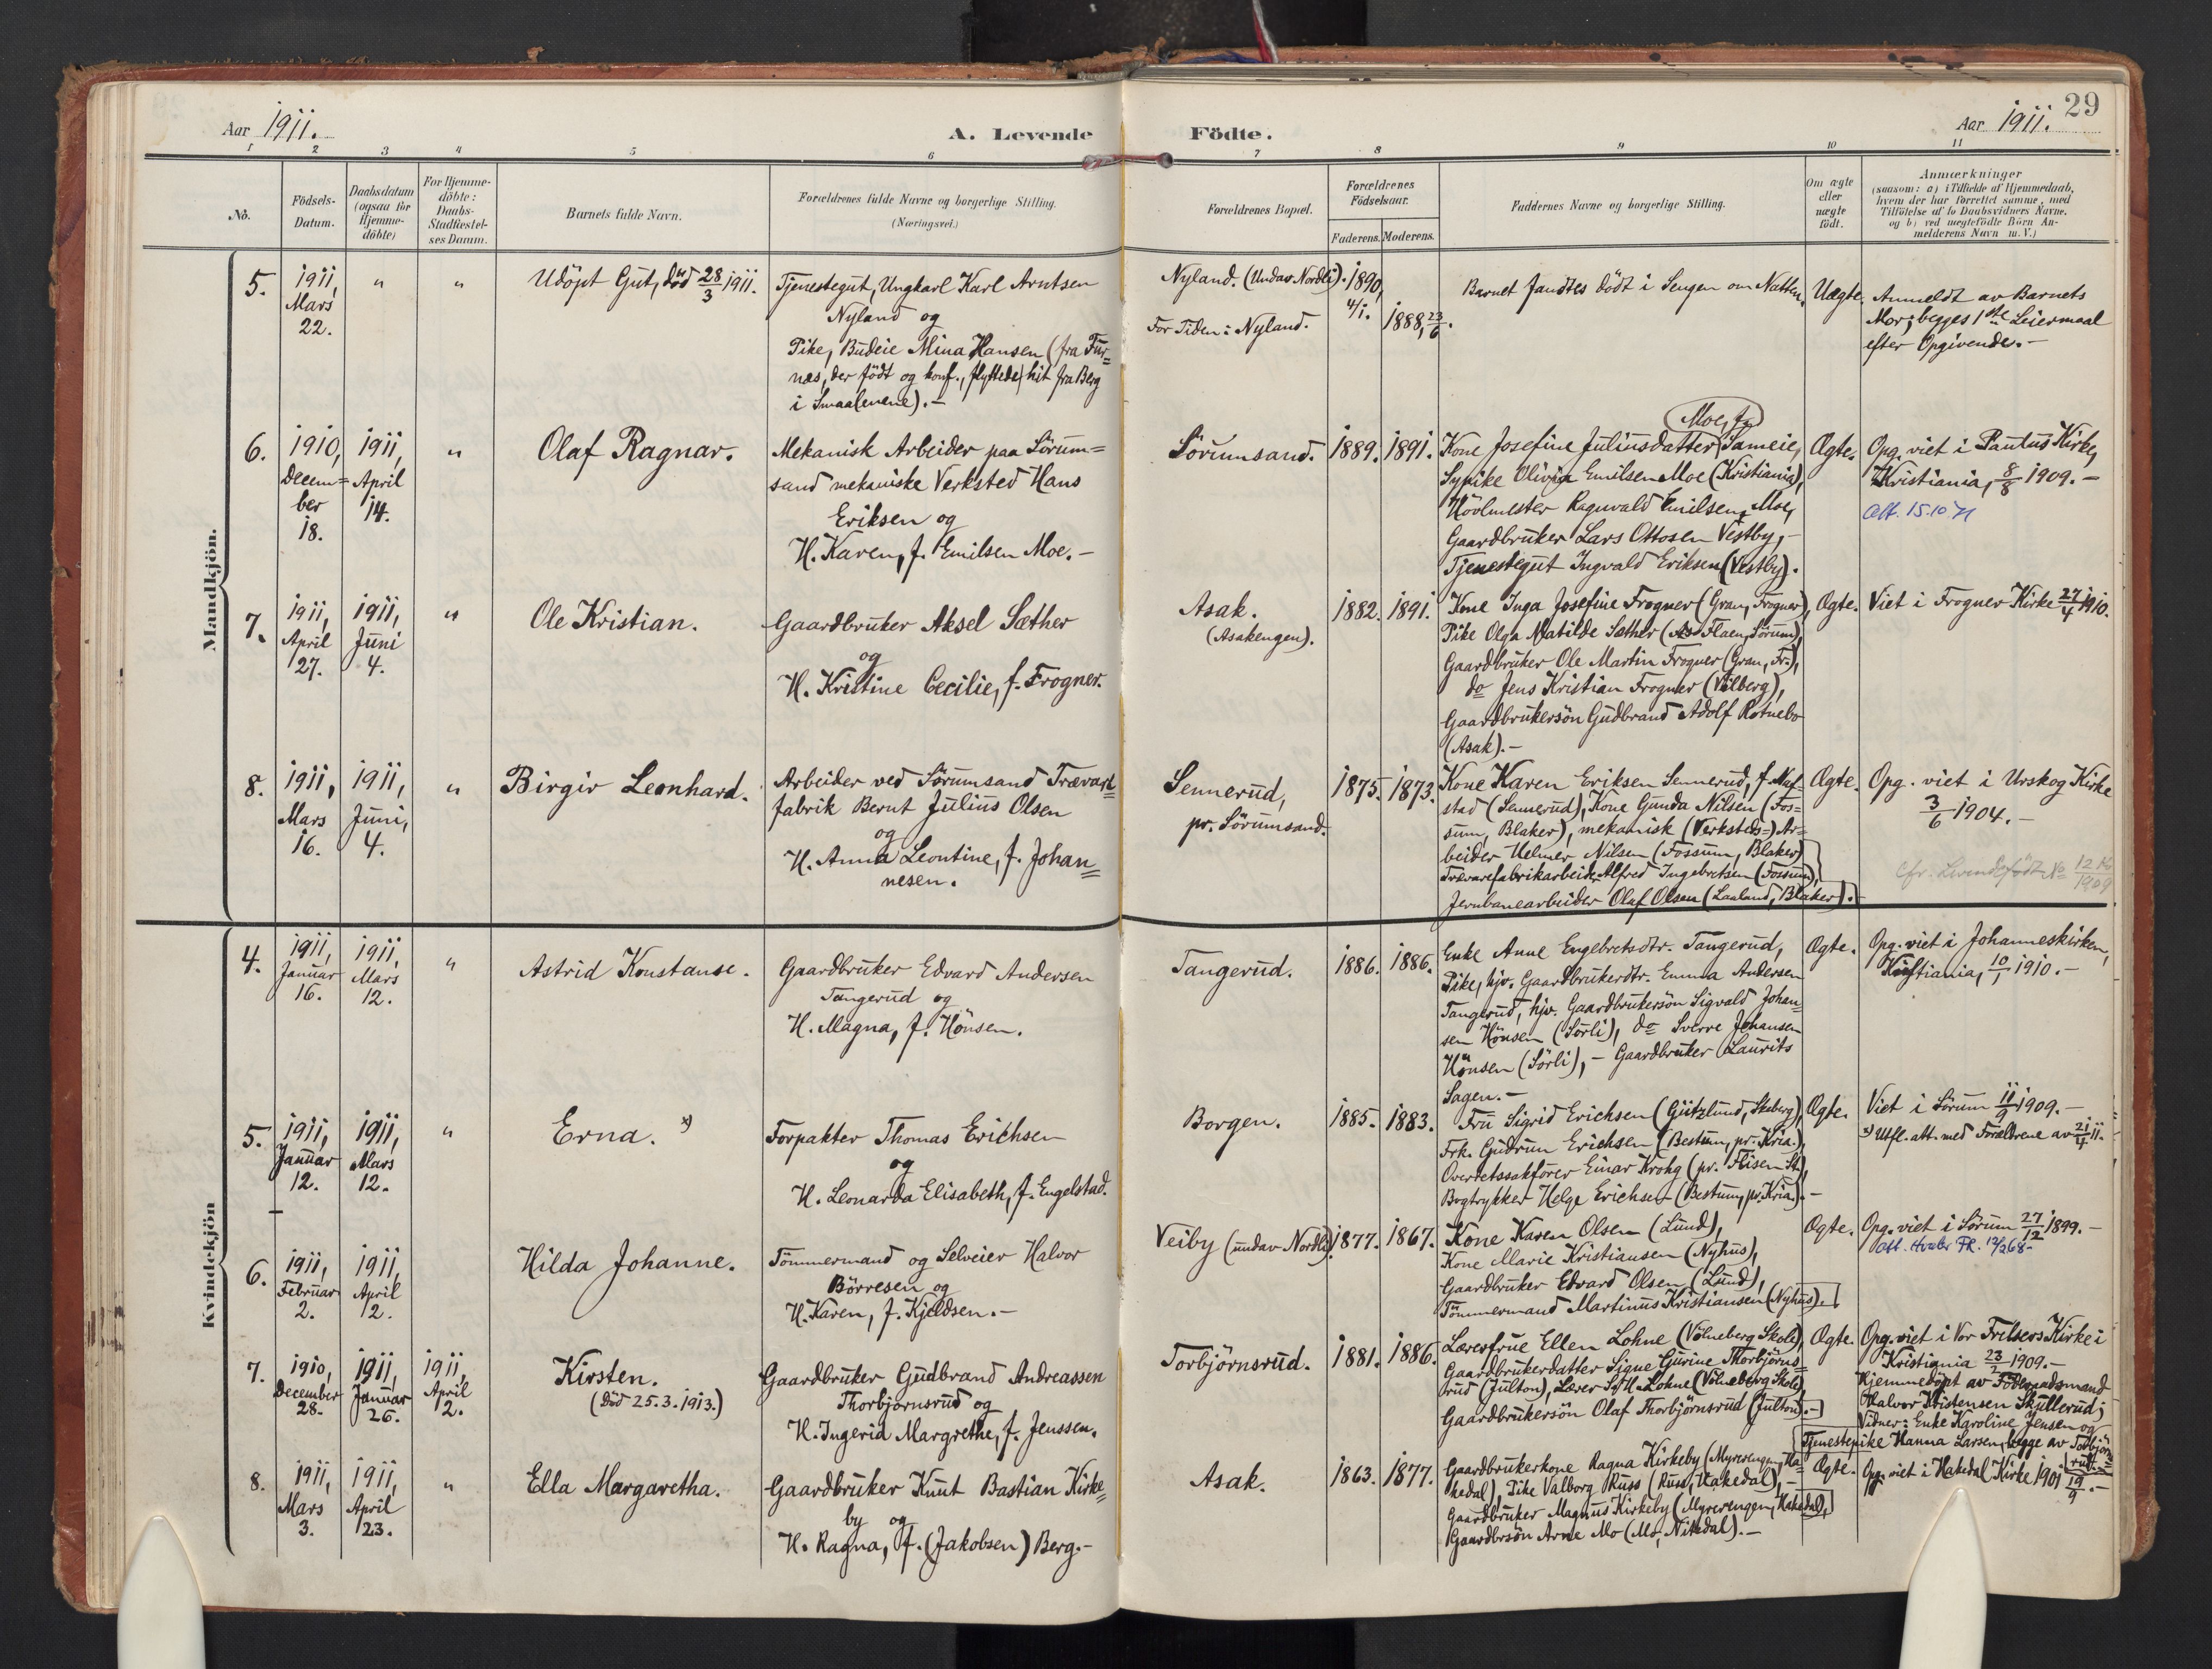 Aar 1911.
A. Levende Födte.
Aar 1911.
29
1 2 3 4 5 6 7 8 9 10 11
No.
Födsels-
Datum.
Daabsdatum
(ogsaa for
Hjemme-
döbte)
For Hjemme-
döbte:
Daabs-
Stadfæstel-
ses Datum.
Barnets fulde Navn.
Forældrenes fulde Navne og borgerlige Stilling.
(Næringsvei.)
Forældrenes Bopæl.
Forældrenes
Födselsaar.
Faderens. Moderens.
Faddernes Navne og borgerlige Stilling.
Om ægte
eller
uægte
födt.
Anmærkninger
(saasom: a) i Tilfælde af Hjemmedaab,
hvem der har forrettet samme, med
Tilföielse af to Daabsvidners Navne.
og b) ved uegtefödte Börn An-
melderens Navn m. V.)
Mandkjön.
5.
1911,
Mars
22.
"
"
Udöpt Gut, död 28/3 1911.
Tjenestegut, Ungkarl Karl Arntsen
Nyland og
Pike, Budeie Mina Hansen (fra Fur=
nes, der födt og konf., flyttede hit fra Berg
i Smaalenene).-
Nyland. (Undav Nordli).
For Tiden: Nyland.
1890,
4/1.
1888, 23/6.
Barnet fandtes dödt i Sengen om Natten.
Uægte.
Anmeldt av Barnets
Mor; begges 1ste Leiermaal
efter Opgivende.-
6.
1910,
Decem=
ber
18.
1911,
April
14.
"
Olaf Ragnar.
Mekanisk Arbeider paa Sörum=
sand mekaniske Verksted Hans
Eriksen og
H. Karen, f. Emilsen Moe.-
Sörumsand.
1889.
1891.
Moe, f.
Kone Josefine Juliusdatter Sameie,
Sypike Olivia Emilsen Moe (Kristiania),
Hövlmester Ragnvald Emilsen Moe,
Gaardbruker Lars Ottosen Vestby,-
Tjenestegut Ingvald Eriksen (Vestby).
Ægte.
Opg. viet i Paulus Kirke,
Kristiania, 8/8 1909.-
Att. 15.10.71
7.
1911,
April
27.
1911,
Juni
4.
"
Ole Kristian.
Gaardbruker Aksel Sæther
og
H. Kristine Cecilie, f. Frogner.
Asak.
(Asakengen).
1882.
1891.
Kone Inga Josefine Frogner (Gran, Frogner),
Pike Olga Matilde Sæther (Flaen, Sörum),
Gaardbruker Ole Martin Frogner (Gran, Fr.),
do Jens Kristian Frogner (Vilberg),
Gaardbrukersön Gudbrand Adolf Rotnebo
(Asak).-
Ægte.
Viet i Frogner Kirke 27/4 1910.
8.
1911,
Mars
16.
1911,
Juni,
4.
"
Birgir Leonhard.
Arbeider ved Sörumsand Trævare=
fabrik Bernt Julius Olsen
og
H. Anna Leontine, f. Johan=
nesen.
Sennerud,
pr. Sörumsand.
1875.
1873.
Kone Karen Eriksen Sennerud, f.
stad (Sennerud), Kone Gunda Nilsen (Fos=
sum, Blaker), mekanisk (Verksteds=) Ar=
beider Helmer Nilsen (Fossum, Blaker)
Trævarefabrikarbeider Alfred Ingebretsen (Fossum),
Jernbanearbeider Olaf Olsen (Laaland, Blaker).
Ægte.
Opg. viet i Urskog Kirke
3/6 1904.-
Cfr. Levendefödt No 12 /1909
Kvindekjön
4.
1911,
Januar
16.
1911,
Mars
12.
"
Astrid Konstanse.
Gaardbruker Edvard Andersen
Tangerud og
H. Magna, f. Hönsen.
Tangerud.
1886.
1886.
Enke Anne Engebretsdtr. Tangerud,
Pike, hjv. Gaardbrukerdtr. Emma Andersen
Tangerud, hjv. Gaardbrukersön Sigvald Johan=
sen Hönsen (Sörli), do Sverre Johansen
Hönsen (Sörli), - Gaardbruker Laurits
Sagen.-
Ægte.
Opg. viet i Johanneskirken,
Kristiania, 10/1 1910.-
5.
1911,
Januar
12.
1911,
Mars
12.
"
Erna. x)
Forpakter Thomas Erichsen
og
H. Leonarda Elisabeth, f. Engelstad.
Borgen.
1885.
1883.
Fru Sigrid Erichsen (Gützlund, Skeberg),
Frk. Gudrun Erichsen (Bestum, pr. Kria.),
Overretssakförer Einar Krohg (pr. Flisen St.),
Bogtrykker Helge Erichsen (Bestum, pr. Kria.).-
Ægte.
Viet i Sörum 11/9 1909.-
x) Utfl. att. med Forældrene av 21/4 11.
6.
1911,
Februar
2.
1911,
April
2.
"
Hilda Johanne.
Tömmermand og Selveier Halvor
Börresen og
H. Karen, f. Kjeldsen.-
Veiby (undav Nordli).
1877.
1867.
Kone Karen Olsen (Lund),
Kone Marie Kristiansen (Nyhus),
Gaardbruker Edvard Olsen (Lund),
Tömmermand Martinus Kristiansen (Nyhus).
Ægte.
Opg. viet i Sörum 27/12 1899.-
att. Hvaler PK. 12/2 68-
7.
1910,
December
28.
1911,
Januar
26.
1911,
April
2.
Kirsten.
(Död 25.3.1913.)
Gaardbruker Gudbrand Andreassen
Thorbjörnsrud og
H. Ingerid Margrethe, f. Jenssen.
Torbjörnsrud.
1881.
1886.
Lærerfrue Ellen Lohne (Völneberg Skole),
Gaardbrukerdatter Signe Gurine Thorbjörns=
rud (Julton), Lærer S. H. Lohne (Völneberg Skole),
Gaardbrukersön Olaf Thorbjörnsrud (Julton).-
Ægte.
Opg. viet i Vor Frelsers Kirke i
Kristiania 23/2 1909.-
Hjemmedöpt av
Halvor Kristensen Skullerud;
Vidner: Enke Karoline Jensen og
Tjenestepike Hanna Larsen, begge av Torbjörns=
rud.-
8.
1911,
Mars
3.
1911,
April
23.
"
Ella Margaretha.
Gaardbruker Knut Bastian Kirke=
by og
H. Ragna, f. (Jakobsen) Berg.-
Asak.
1863.
1877.
Gaardbrukerkone Ragna Kirkeby (Myrerengen, Ha=
kedal), Pike Valborg Russ (Russ, Hakedal),-
Gaardbruker Magnus Kirkeby (Myrerengen, Hakedal),
Gaardbrsön Arne Mo (Mo, Nittedal).-
Ægte.
Opg. viet i Hakedal Kirke 1901 19/9.-